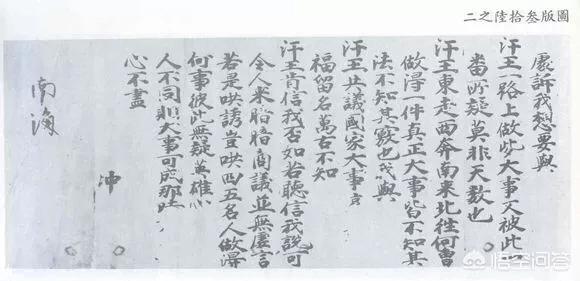 圖版叁拾陸之二
屢訴我想要與
汗王一路上做此大事又被此一
畨所疑莫非天數也
汗王東走西奔南来北徃何曾
做得一件真正大事皆不知其
法不知其竅也我與
汗王共議國家大事
福留名萬古不知
汗王肯信我否如若聽信我說可
令人来暗暗商議並無虛言
若是哄誘豈哄四五名人做得
何事彼此無疑英雄心
人不同大事可成那時
心不盡
冲
南海
悟空问答